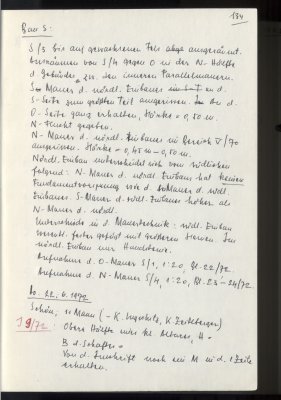 134
Bau S:
S/3 bis auf gewachsenen Fels ausgeräumt.
Ausräumen von S/4 gegen O in der N-Hälfte
d. Gebäudes, zw. den inneren Parallelmauern.
S-Mauer d. nördl. Einbaus und d.
S-Seite zum größten Teil ausgerissen. Bei d.
O-Seite ganz erhalten, Stärke = 0,50 m.
N-Flucht gegeben.
N-Mauer d. nördl. Einbaues im Bereich V/70
ausgerissen. Stärke = 0,45 m – 0,50 m.
Nördl. Einbau unterscheidet sich vom südlichen
folgend: N-Mauer d. nördl. Einbaus hat keinen
Fundamentvorsprung wie d. Mauer d. südl.
Einbaues. S-Mauer d. südl. Einbaues höher als
N-Mauer d. nördl.
Unterschiede in d. Mauertechnik: südl. Einbau
fester gefügt mit größeren Steinen. Im
nördl. Einbau nur
Aufnahme d. O-Mauer S/1, 1:20, Bl. 22/72.
Aufnahme d. N-Mauer S/4, 1:20, Bl. 23-24/72.
Do 22. 6. 1972
Schön, 11 Mann (- K. , K. Zeitlberger)
I 9/72: Obere Hälfte
B d. Schaftes =
Von d. Inschrift noch ein M in d. 1. Zeile
erhalten.